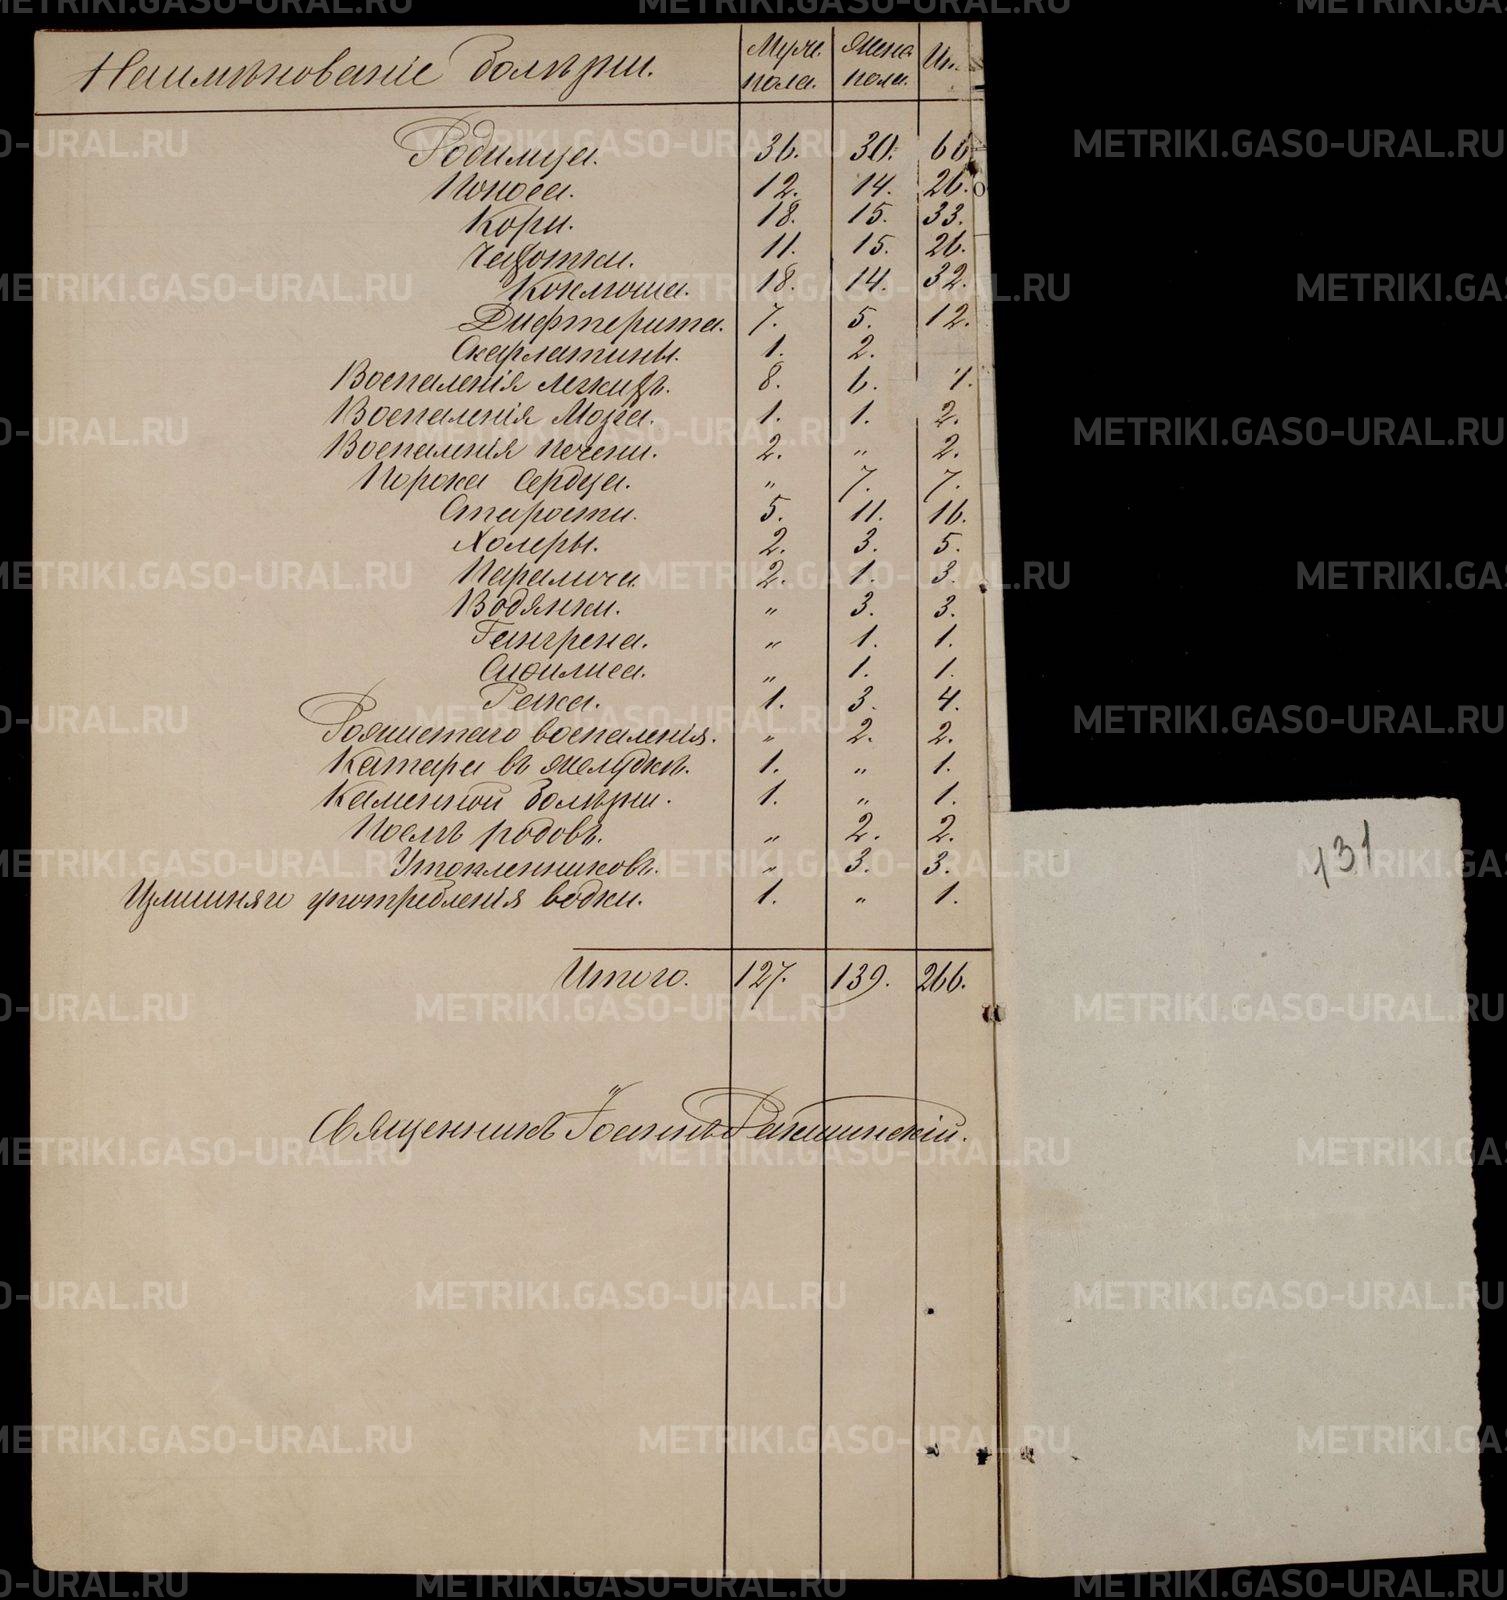 Наимѣнованіе болѣзни. Муж. пола. Жен. пола. Ит.
Родимца. 36. 30. 66
Поноса. 12. 14. 26.
Кори. 18. 15. 33.
Чахотки. 11. 15. 26.
Коклюша. 18. 14. 32.
Дифтерита. 7. 5. 12.
Скарлатины. 1. 2.
Воспаленія легкихъ. 8. 6.
Воспаленія Мозга. 1. 1. 2.
Воспаленія печени. 2. „ 2.
Порока Сердца. „ 7. 7.
Старости. 5. 11. 16.
Холеры. 2. 3. 5.
Паралича 2. 1. 3.
Водянки. „ 3. 3.
Гангрена. „ 1. 1.
Сифилиса. „ 1. 1.
Рака. 1. 3. 4.
Рожистаго воспаленія. „ 2. 2.
Катара въ желудкѣ. 1. „ 1.
Каменной болѣзни. 1. „ 1.
Послѣ родовъ. „ 2. 2.
Утопленниковъ. „ 3. 3.
Излишняго употребленія водки. 1. „ 1.
Итого. 127. 139. 266.
Священникъ Іоаннъ Ракшинскій.
131
METRIKI.GASO-URAL.RU